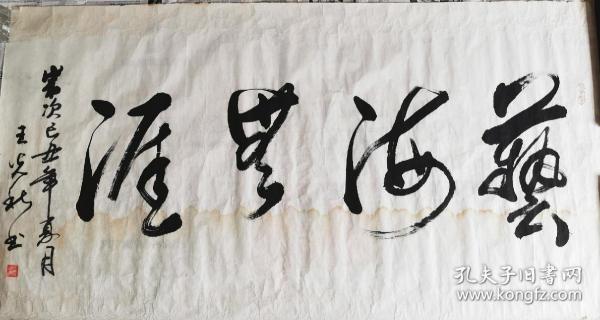 藝海無涯
歲次己丑年夏月
王光秋书
孔夫子旧书网
www.kongfz.com